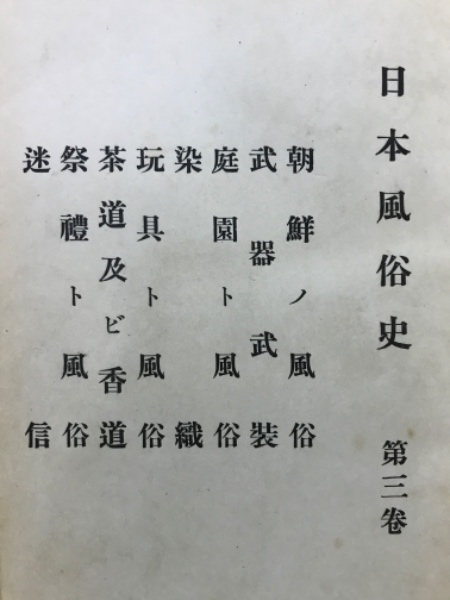 日本風俗史 第三卷
朝鮮ノ風俗
武器武裝
庭園ト風俗
染織
玩具ト風俗
茶道及ビ香道
祭禮ト風俗
迷信